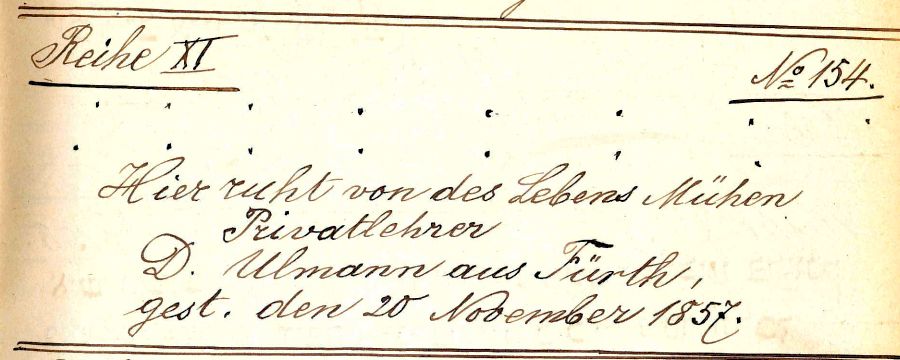 Reihe XI
No 154.
Hier ruht von des Lebens Mühen
Privatlehrer
D. Ulmann aus Fürth,
gest. den 20 November 1857.